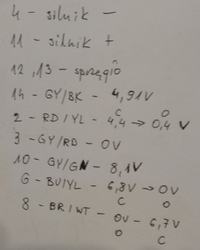 4 - silnik -
11 - silnik +
12,13 - sprzęgło
14 - GY/BK - 4,91V
C O
2 - RD/YL - 4,4 → 0,4 V
3 - GY/RD - 0V
10 - GY/GN - 8,1V
6 - BU/YL - 6,8V → 0V
C O
8 - BR/WT - 0V - 6,7V
O C